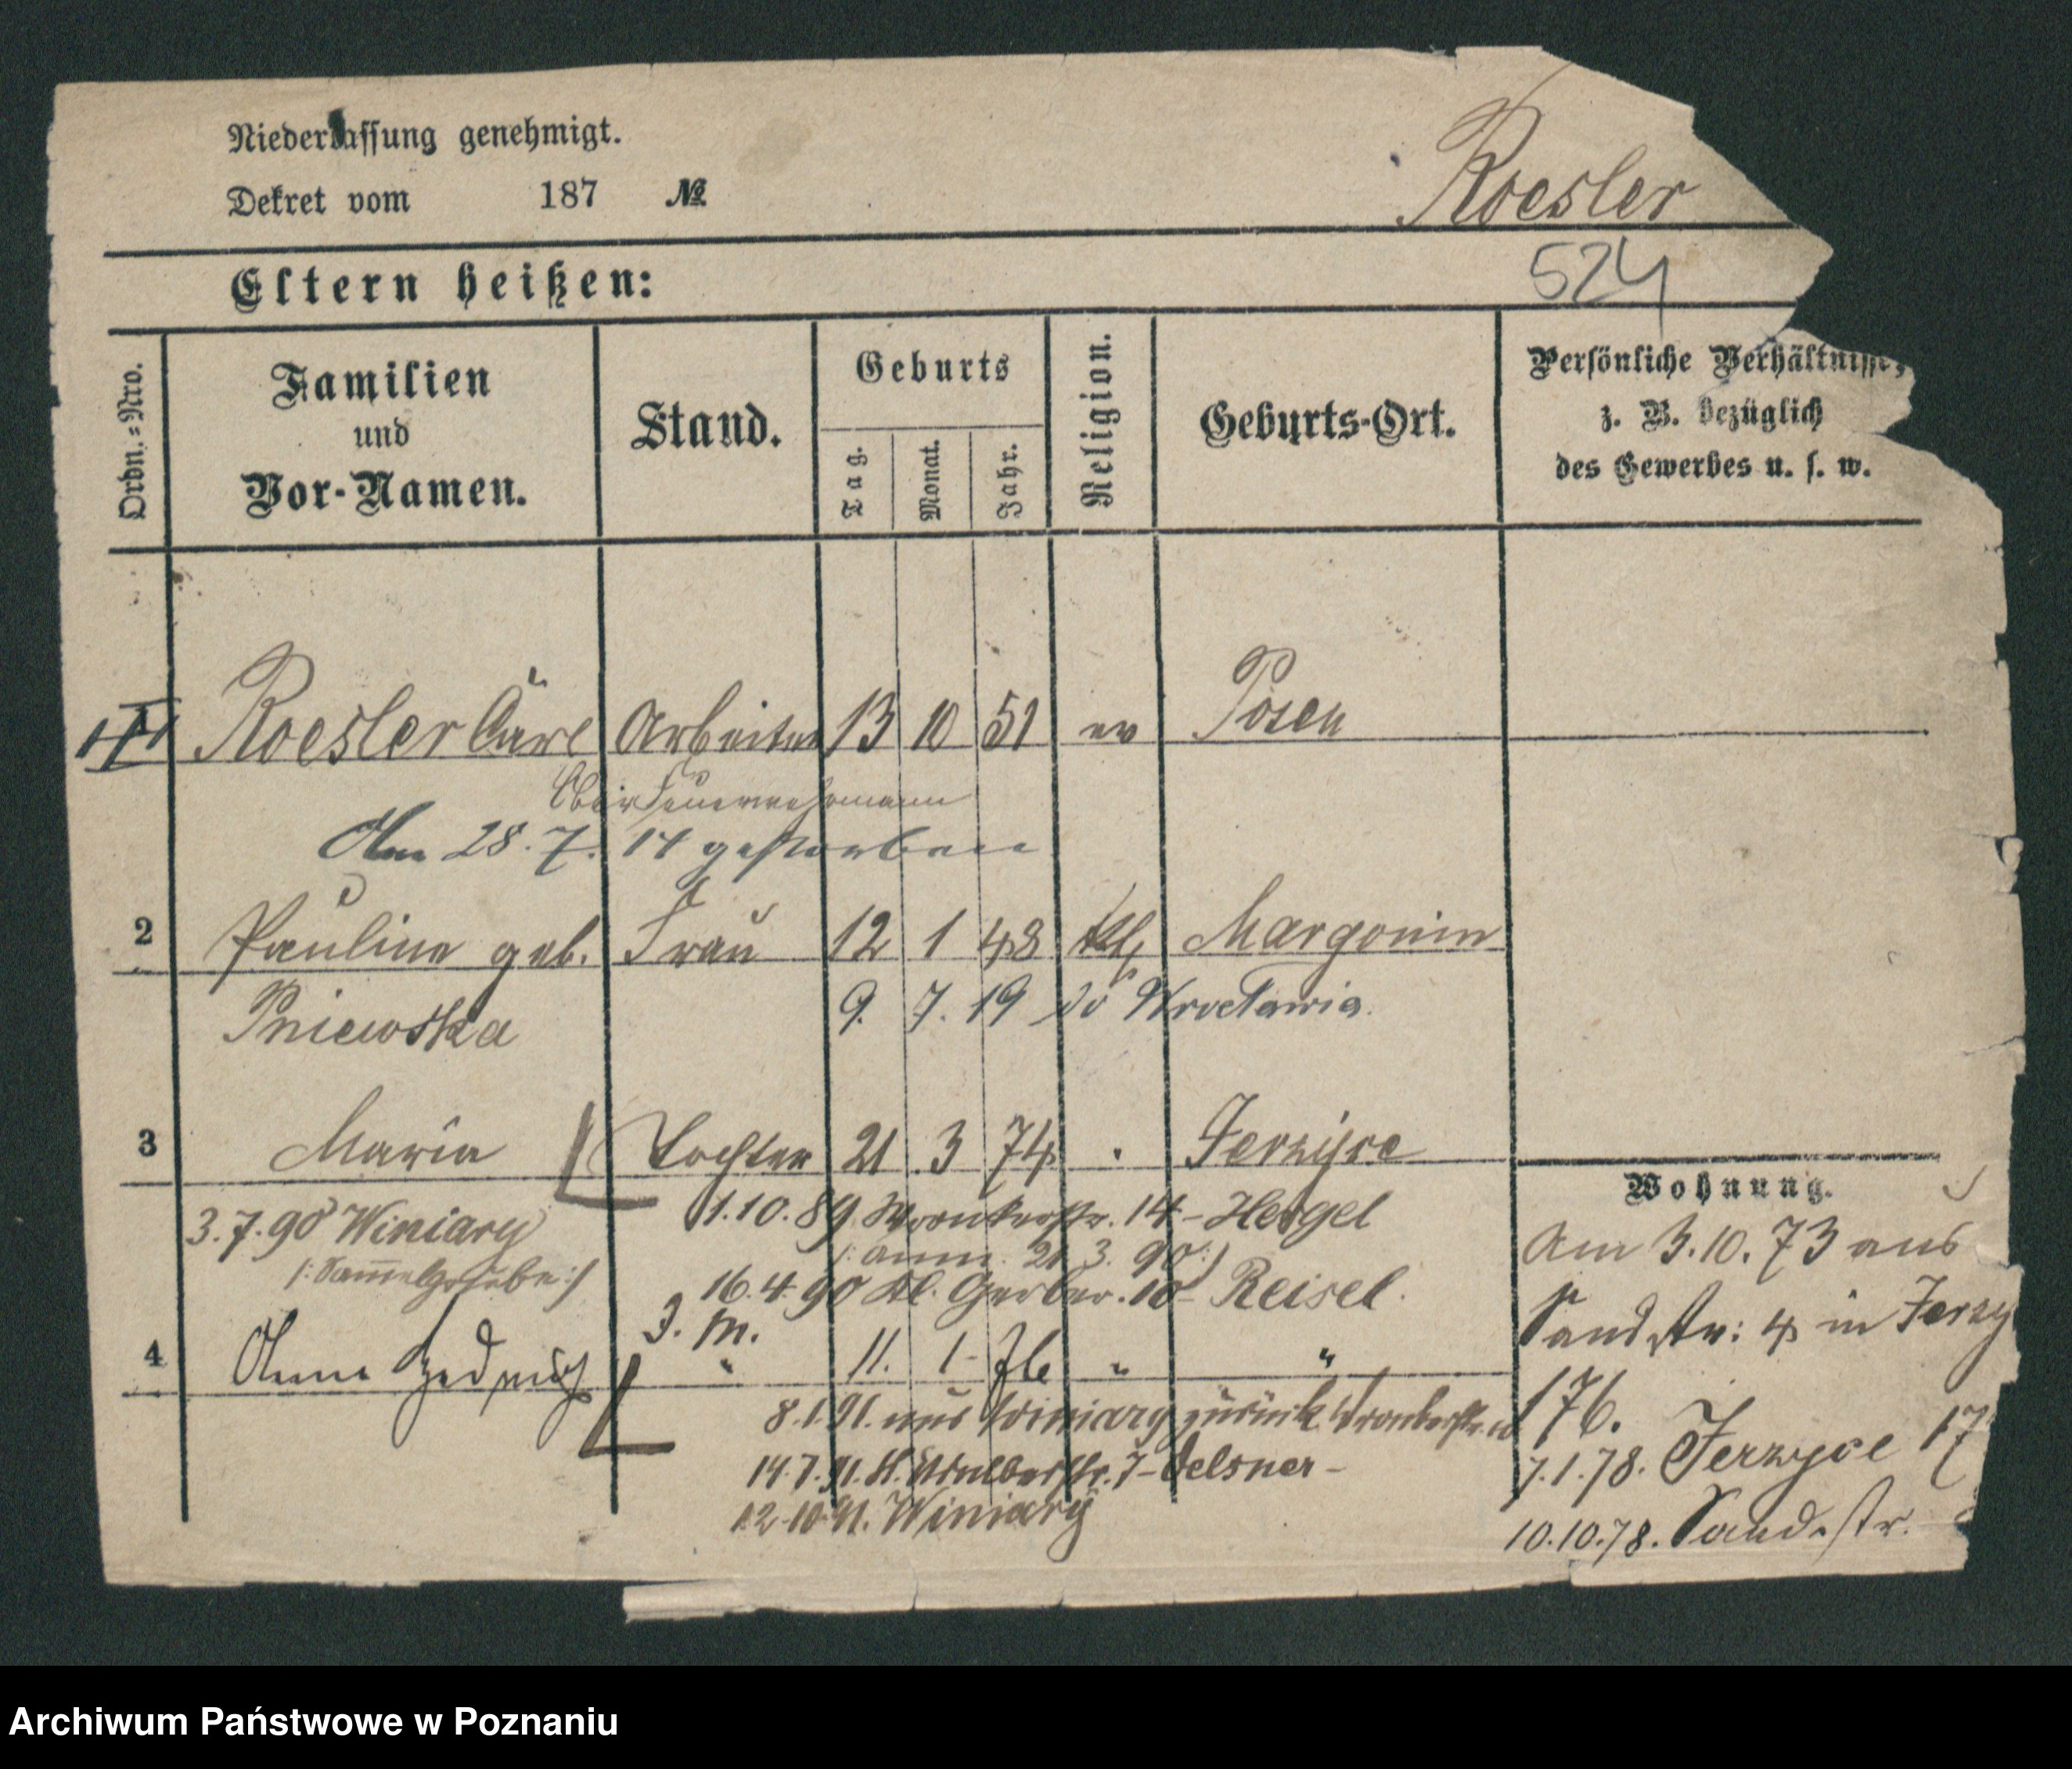 Niederlassung genehmigt.
Dekret vom 187 №
Roesler
Eltern heißen:
524
Ordn.=Nro.
Familien
und
Vor-Namen.
Stand.
Geburts
Tag.
Monat.
Jahr.
Religion.
Geburts-Ort.
Persönliche Verhältnisse,
z. B. bezüglich
des Gewerbes u. s. w.
Roesler Carl Arbeiter 13 10 51 ev Posen
Oberfeuerwehrmann
Am 28. 7. 14 gestorben
2 Pauline geb. Frau 12 1 48 Margonin
Pniewska 9. 7. 19 do Wrocławia.
3 Maria Tochter 21 3 74 Jerzyce
Wohnung.
3.7.90 Winiary
1.10.89. Wronkerstr. 14 - Hergel
/: anm. 21. 3. 90 :/
16.4.90 Kl. Gerber. 10 - Reisel.
3. M.
4 Anna Hedwig " 11. 1 - 76 " "
8.1.91. aus Winiary zurück Wronkerstr.
14.7.91. - Oelsner -
12.10.91. Winiary
Am 3.10.73 aus
Sandstr: 4 in Jerzy
176.
7.1.78. Jerzyce 17
10.10.78. Sandstr.
Archiwum Państwowe w Poznaniu